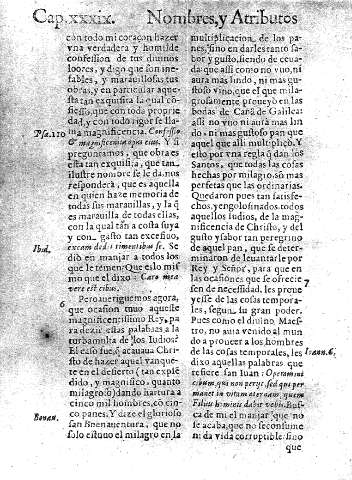 Cap. xxxix. Nombres, y Atributos
con todo mi coraçon hazer
vna verdadera y humilde
confession de tus diuinos
loores, y digo que son ine-
fables, y marauillosas tus
obras, y en particular aque-
sta tan exquisita la qual cõ-
fiesso, que con toda proprie
dad, y con todo rigor se llo-
ma magnificencia. Confessio
Psa. 110
& magnificentia opus eius. Y si
preguntamos, que obra es
esta tan exquisita, que tan
ilustre nombre se le da, nos
respondera, que es aquella
en quien haze memoria de
todas sus marauillas, y la q̃
es marauilla de todas ellas,
con la qual tan a costa suya
y con gasto tan excessiuo,
Ibid.
escam dedit timentibus se. Se
dió en manjar a todos los
que le temen: Que eslo mis
mo que el dixo: Caro mea
vere est cibus.
6
Pero aueriguemos agora,
que ocasion muo aqueste
magnificentissimo Rey, pa
ra dezir estas palabras a la
turbamulta de los Iudios?
El caso fue, q̃ acauaua Chri-
sto de hazer aquel vanque-
te en el desierto (tan esplẽ
dido, y magnifico, quanto
milagroso) dando hartura a
cinco mil hombres, cõ cin-
co panes. Y dize el glorioso
Bonau.
san Buenauentura, que no
solo estuuo el milagro en la
multiplicacion de los pa-
nes, sino en darles tanto sa-
bor y gusto, siendo de ceua-
da: que assi como no vuo, ni
aura mas lindo, ni mas gu-
stoso vino, que el que mila-
grosamente proueyò en las
bodas de Canà de Galilea:
assi no vuo ni aura mas lin
do, ni mas gustoso pan que
aquel que alli multiplicò. Y
esto por vna regla q̃ dan los
Santos, que todas las cosas
hechas por milagro, sõ mas
perfetas que las ordinarias.
Quedaron pues tan satisfe-
chos, y engolosinados todos
aquellos Iudios, de la mag-
nificencia de Christo, y del
gusto y sabor tan peregrino
de aquel pan, que se deter-
minaron de leuantarle por
Rey y Señor, para que en
las ocasiones que se ofrecie
7
sen de necessidad, les proue
yesse de las cosas tempora-
les, segun su gran poder.
Pues como el diuino Maes-
tro, no auia venido al mun
do a proueer a los hombres
de las cosas temporales, les
Ioann. 6.
dixo aquellas palabras que
refiere san Iuan: Operamini
cibum, qui non perijt, sed qui per
manet in vitam æternam, quem
Filius hominis dabit vobis. Bus-
ca de mi el manjar que no
se acaba, que no se consume
ni da vida corruptible, sino
que